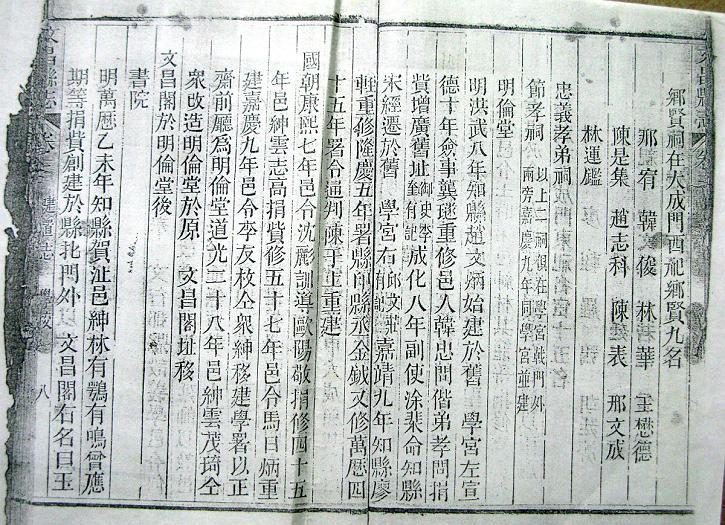 文昌縣志
鄉賢祠在大成門西祀鄉賢九名
邢宥 韓俊 林華 王懋德
陳是集 趙志科 陳表 邢文成
林運鑑
忠義孝弟祠
節孝祠 以上二祠現在學宮戟門外兩旁嘉慶九年同學宮並建
明倫堂
明洪武八年知縣趙文炳始建於舊 學宮左宣
德十年僉事龔璲重修邑人韓忠問偕弟孝問捐
貲增廣舊址 御史李 有記 成化八年副使涂棐命知縣
宋經遷於舊 學宮右 邱文莊 有記 嘉靖九年知縣廖
軾重修隆慶五年署縣印縣丞金鉞又修萬曆四
十五年署令通判陳于宸重建
國朝康熙七年邑令沈彨訓導歐陽敬捐修四十五
年邑紳雲志高捐貲修五十七年邑令馬日炳重
建嘉慶九年邑令李友枚仝眾紳移建學署以正
齋前廳爲明倫堂道光二十八年邑紳雲茂琦仝
衆改造明倫堂於原 文昌閣址移
文昌閣於明倫堂後
書院
明萬曆乙未年知縣賀沚邑紳林有鶚有鳴曾應
期等捐貲創建於縣北門外 文昌閣右名曰玉
文昌縣志 卷之 建置志 學校 八